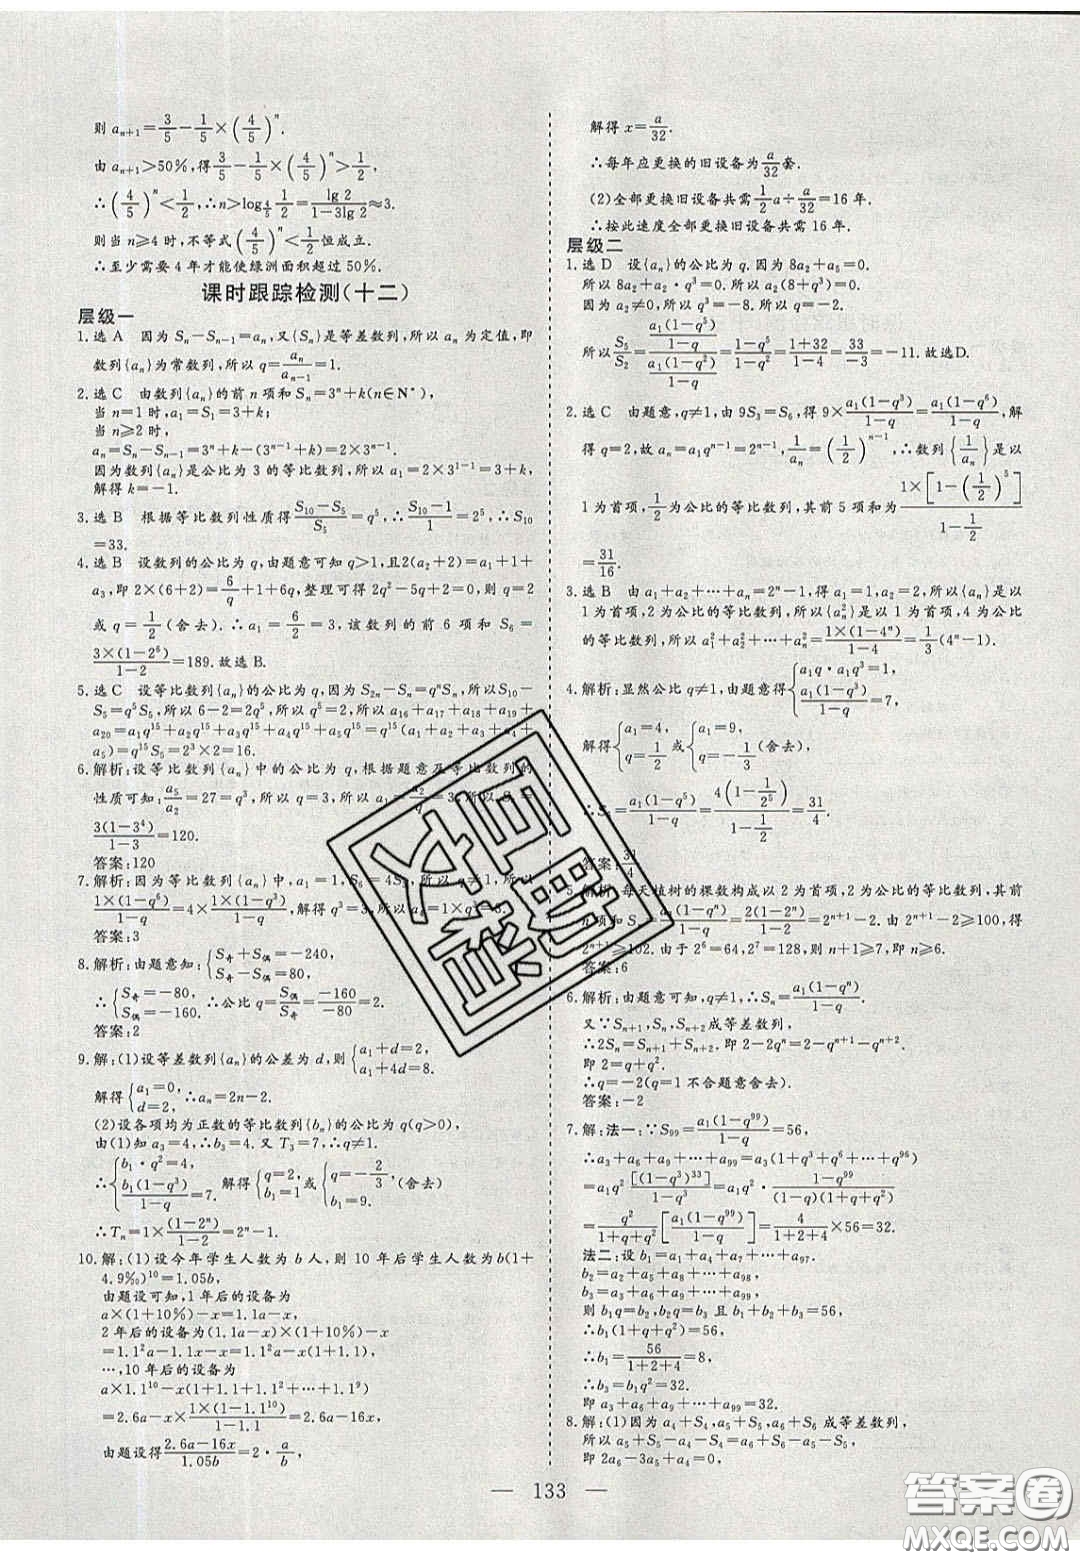 则 aₙ₊₁=3/5-1/5×(4/5)ⁿ.
由 aₙ₊₁>50%,得3/5-1/5×(4/5)ⁿ>1/2,
∴(4/5)ⁿ<1/2,∴n>log_{4/5} 1/2=lg 2/(1-3lg 2)≈3.
则当 n≥4 时,不等式(4/5)ⁿ<1/2恒成立.
∴至少需要 4 年才能使绿洲面积超过 50%.
课时跟踪检测(十二)
层级一
1.选 A 因为 Sₙ-Sₙ₋₁=aₙ,又{Sₙ}是等差数列,所以 aₙ 为定值,即
数列{aₙ}为常数列,所以 q=aₙ/aₙ₋₁=1.
2.选 C 由数列{aₙ}的前 n 项和 Sₙ=3ⁿ+k(n∈N*),
当 n=1 时,a₁=S₁=3+k;
当 n≥2 时,
aₙ=Sₙ-Sₙ₋₁=3ⁿ+k-(3ⁿ⁻¹+k)=2×3ⁿ⁻¹.
因为数列{aₙ}是公比为 3 的等比数列,所以 a₁=2×3¹⁻¹=3+k,
解得 k=-1.
3.选 B 根据等比数列性质得(S₁₀-S₅)/S₅=q⁵,∴(S₁₀-1)/1=2⁵,∴S₁₀
=33.
4.选 B 设数列的公比为 q,由题意可知 q>1,且2(a₂+2)=a₁+1+
a₃,即 2×(6+2)=6/q+1+6q,整理可得 2q²-5q+2=0,则 q=2
或 q=1/2(舍去).∴a₁=6/2=3,该数列的前 6 项和 S₆=
3×(1-2⁶)/(1-2)=189.故选 B.
5.选 C 设等比数列{aₙ}的公比为 q,因为 S₂ₙ-Sₙ=qⁿSₙ,所以 S₁₀-
S₅=q⁵S₅,所以 6-2=2q⁵,所以 q⁵=2,所以 a₁₆+a₁₇+a₁₈+a₁₉+
a₂₀=a₁q¹⁵+a₂q¹⁵+a₃q¹⁵+a₄q¹⁵+a₅q¹⁵=q¹⁵(a₁+a₂+a₃+a₄+
a₅)=q¹⁵S₅=2³×2=16.
6.解析:设等比数列{aₙ}中的公比为 q,根据题意及等比数列的
性质可知:a₅/a₂=27=q³,所以 q=3,所以 a₁=a₂/q=3,所以 S₄=
3(1-3⁴)/(1-3)=120.
答案:120
7.解析:因为等比数列{aₙ}中,a₁=1,S₆=4S₃,所以 q≠1,所以
1×(1-q⁶)/(1-q)=4×1×(1-q³)/(1-q),解得 q³=3,所以 a₄=1×q³=3.
答案:3
8.解析:由题意知:{S奇+S偶=-240, S奇-S偶=80,
∴{S奇=-80, S偶=-160.∴公比 q=S偶/S奇=-160/-80=2.
答案:2
9.解:(1)设等差数列{aₙ}的公差为 d,则{a₁+d=2, a₁+4d=8.
解得{a₁=0, d=2. ∴aₙ=2n-2.
(2)设各项均为正数的等比数列{bₙ}的公比为 q(q>0),
由(1)知 a₃=4,∴b₃=4.又 T₃=7,∴q≠1.
∴{b₁·q²=4, b₁(1-q³)/(1-q)=7. 解得{q=2, b₁=1 或{q=-2/3, b₁=9.(舍去)
∴Tₙ=1×(1-2ⁿ)/(1-2)=2ⁿ-1.
10.解:(1)设今年学生人数为 b 人,则 10 年后学生人数为 b(1+
4.9‰)¹⁰=1.05b,
由题设可知,1 年后的设备为
a×(1+10%)-x=1.1a-x,
2 年后的设备为(1.1a-x)×(1+10%)-x
=1.1²a-1.1x-x=1.1²a-x(1+1.1),
…,10 年后的设备为
a×1.1¹⁰-x(1+1.1+1.1²+…+1.1⁹)
=2.6a-x×1×(1-1.1¹⁰)/(1-1.1)=2.6a-16x,
由题设得(2.6a-16x)/1.05b=2·a/b,
解得 x=a/32.
∴每年应更换的旧设备为a/32套.
(2)全部更换旧设备共需1/2a÷a/32=16 年.
∴按此速度全部更换旧设备共需 16 年.
层级二
1.选 D 设{aₙ}的公比为 q.因为 8a₂+a₅=0.
所以 8a₂+a₂·q³=0.所以 a₂(8+q³)=0.
因为 a₂≠0,所以 q³=-8.所以 q=-2.
所以S₅/S₂=[a₁(1-q⁵)/(1-q)]/[a₁(1-q²)/(1-q)]=(1-q⁵)/(1-q²)=(1+32)/(1-4)=33/-3=-11.故选D.
2.选 C 由题意,q≠1,由 9S₃=S₆,得 9×a₁(1-q³)/(1-q)=a₁(1-q⁶)/(1-q),解
得 q=2,故 aₙ=a₁qⁿ⁻¹=2ⁿ⁻¹,1/aₙ=(1/2)ⁿ⁻¹,∴数列{1/aₙ}是以
1 为首项,1/2为公比的等比数列,其前 5 项和为1×[1-(1/2)⁵]/(1-1/2)
=31/16.
3.选 B 由 a₁+a₂+…+aₙ=2ⁿ-1,得 a₁=1,a₂=2,所以{aₙ}是以
1 为首项,2 为公比的等比数列,所以{aₙ²}是以 1 为首项,4 为公比
的等比数列,所以 a₁²+a₂²+…+aₙ²=1×(1-4ⁿ)/(1-4)=1/3(4ⁿ-1).
4.解析:显然公比 q≠1,由题意得{a₁q·a₁q³=1, a₁(1-q³)/(1-q)=7,
解得{a₁=4, q=1/2 或{a₁=9, q=-1/3(舍去),
∴S₅=a₁(1-q⁵)/(1-q)=4(1-1/2⁵)/(1-1/2)=31/4.
答案:31/4
5.解析:每天植树的棵数构成以 2 为首项,2 为公比的等比数列,其前
n 项和 Sₙ=a₁(1-qⁿ)/(1-q)=2(1-2ⁿ)/(1-2)=2ⁿ⁺¹-2.由 2ⁿ⁺¹-2≥100,得
2ⁿ⁺¹≥102.由于 2⁶=64,2⁷=128,则 n+1≥7,即 n≥6.
答案:6
6.解析:由题意可知,q≠1,∴Sₙ=a₁(1-qⁿ)/(1-q).
又∵Sₙ₊₁,Sₙ,Sₙ₊₂成等差数列,
∴2Sₙ=Sₙ₊₁+Sₙ₊₂,即 2-2qⁿ=2-qⁿ⁺¹-qⁿ⁺²,
即 2=q+q².
∴q=-2(q=1 不合题意舍去).
答案:-2
7.解:法一:∵S₉₉=a₁(1-q⁹⁹)/(1-q)=56,
∴a₃+a₆+a₉+…+a₉₉=a₃(1+q³+q⁶+…+q⁹⁶)
=a₁q²[(1-(q³)³³)/(1-q³)]=a₁q²·(1-q⁹⁹)/((1-q)(1+q+q²))
=q²/(1+q+q²)[a₁(1-q⁹⁹)/(1-q)]=4/(1+2+4)×56=32.
法二:设 b₁=a₁+a₄+a₇+…+a₉₇.
b₂=a₂+a₅+a₈+…+a₉₈,
b₃=a₃+a₆+a₉+…+a₉₉,
则 b₁q=b₂,b₂q=b₃ 且 b₁+b₂+b₃=56,
∴b₁(1+q+q²)=56,
∴b₁=56/(1+2+4)=8,
∴b₃=b₁q²=32.
即 a₃+a₆+a₉+…+a₉₉=32.
8.解:(1)因为 a₄+S₄,a₅+S₅,a₆+S₆ 成等差数列,
所以 a₅+S₅-a₄-S₄=a₆+S₆-a₅-S₅,
即 2a₆-3a₅+a₄=0,
— 133 —
互助文档
答案圈
MXQE.COM